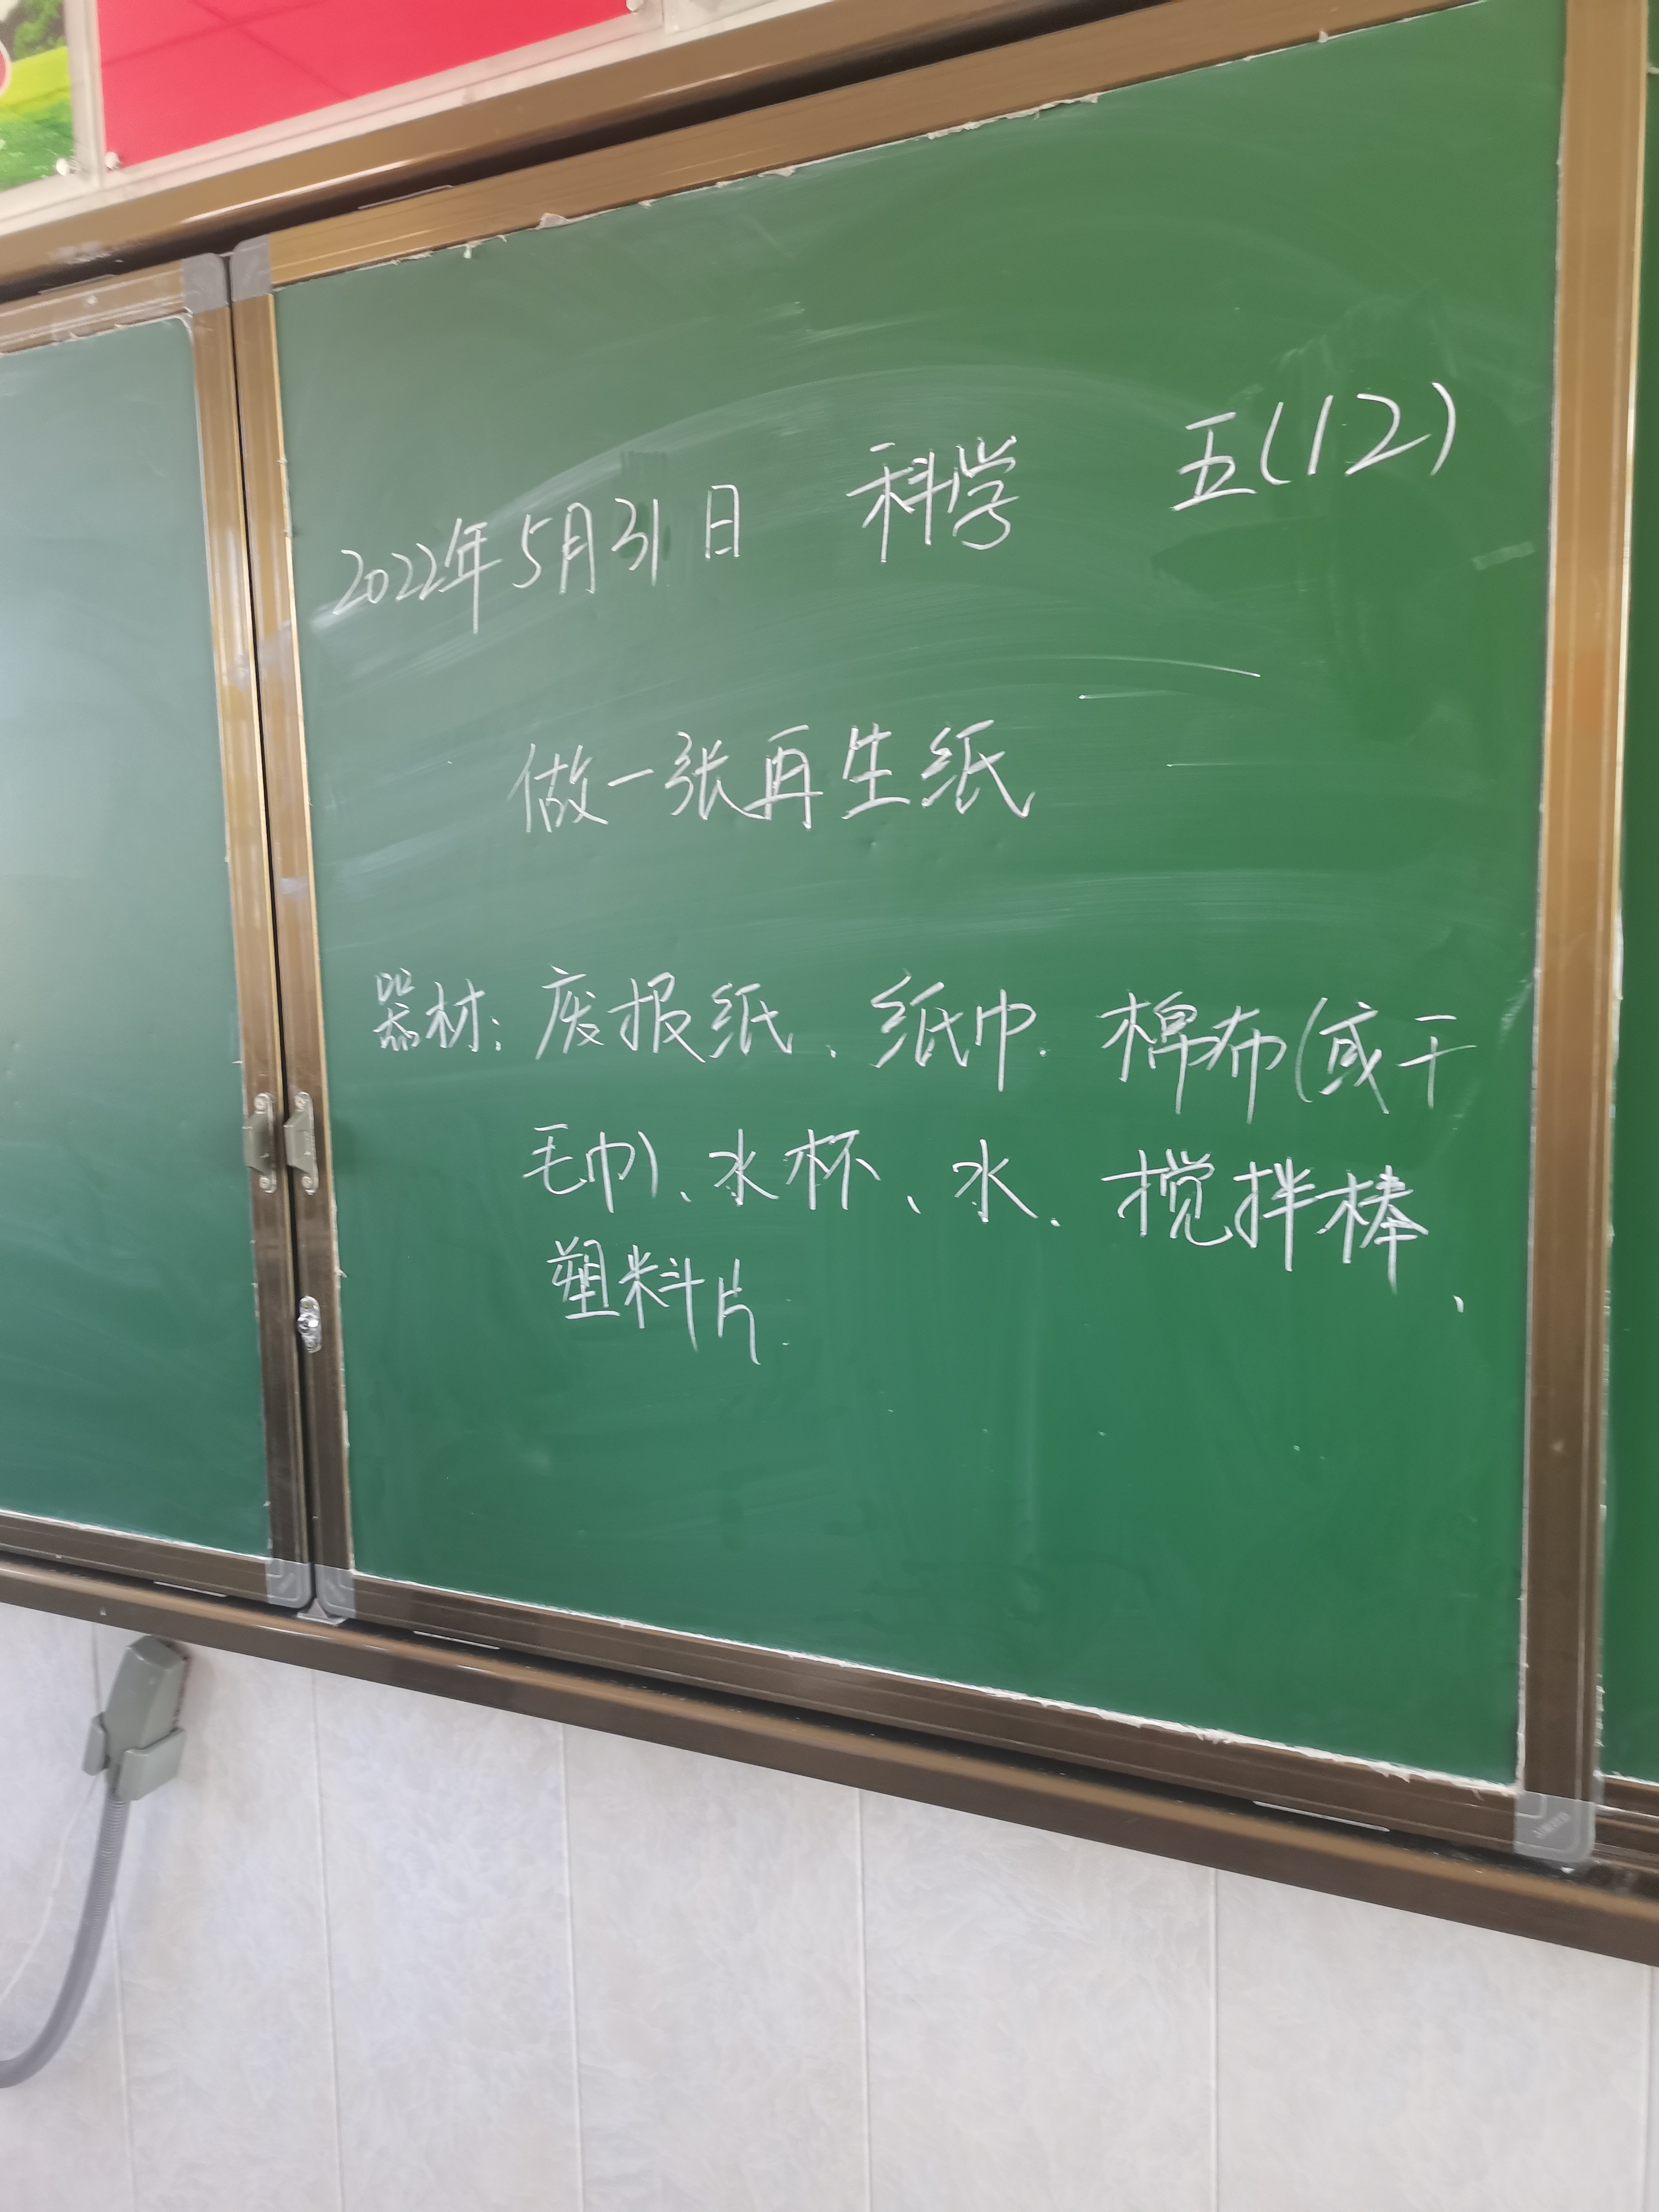 2022年5月31日 科学 五(12)
做一张再生纸
器材：废报纸、纸巾、棉布(或干
毛巾)、水杯、水、搅拌棒、
塑料片.